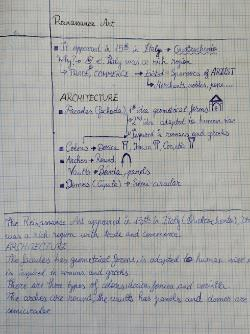 Renaissance Art
It appeared in 15th in Italy → Quattrocento
Why? → B.c. Italy was a rich region
→ TRADE, COMMERCE → Sponsors of ARTIST
→ Merchants, nobles, pope...
ARCHITECTURE
Facades 1st idea geometrical forms
2nd idea adapted to human size
Inspired in romans and greeks
Colums → Dorica Ionica Corinthia
Arches → Round
Vaults → panels
Domes → Semi circular
The Renaissance Art appeared in 15th in Italy (Quattrocento), It
was a rich region with trade and commerce.
ARCHITECTURE
The facades has geometrical forms, is adapted to human size and
is Inspired in romans and greeks.
There are three types of colums: dorica, Ionica and corinthia.
The arches are round, the vaults has panels and domes are
semicircular